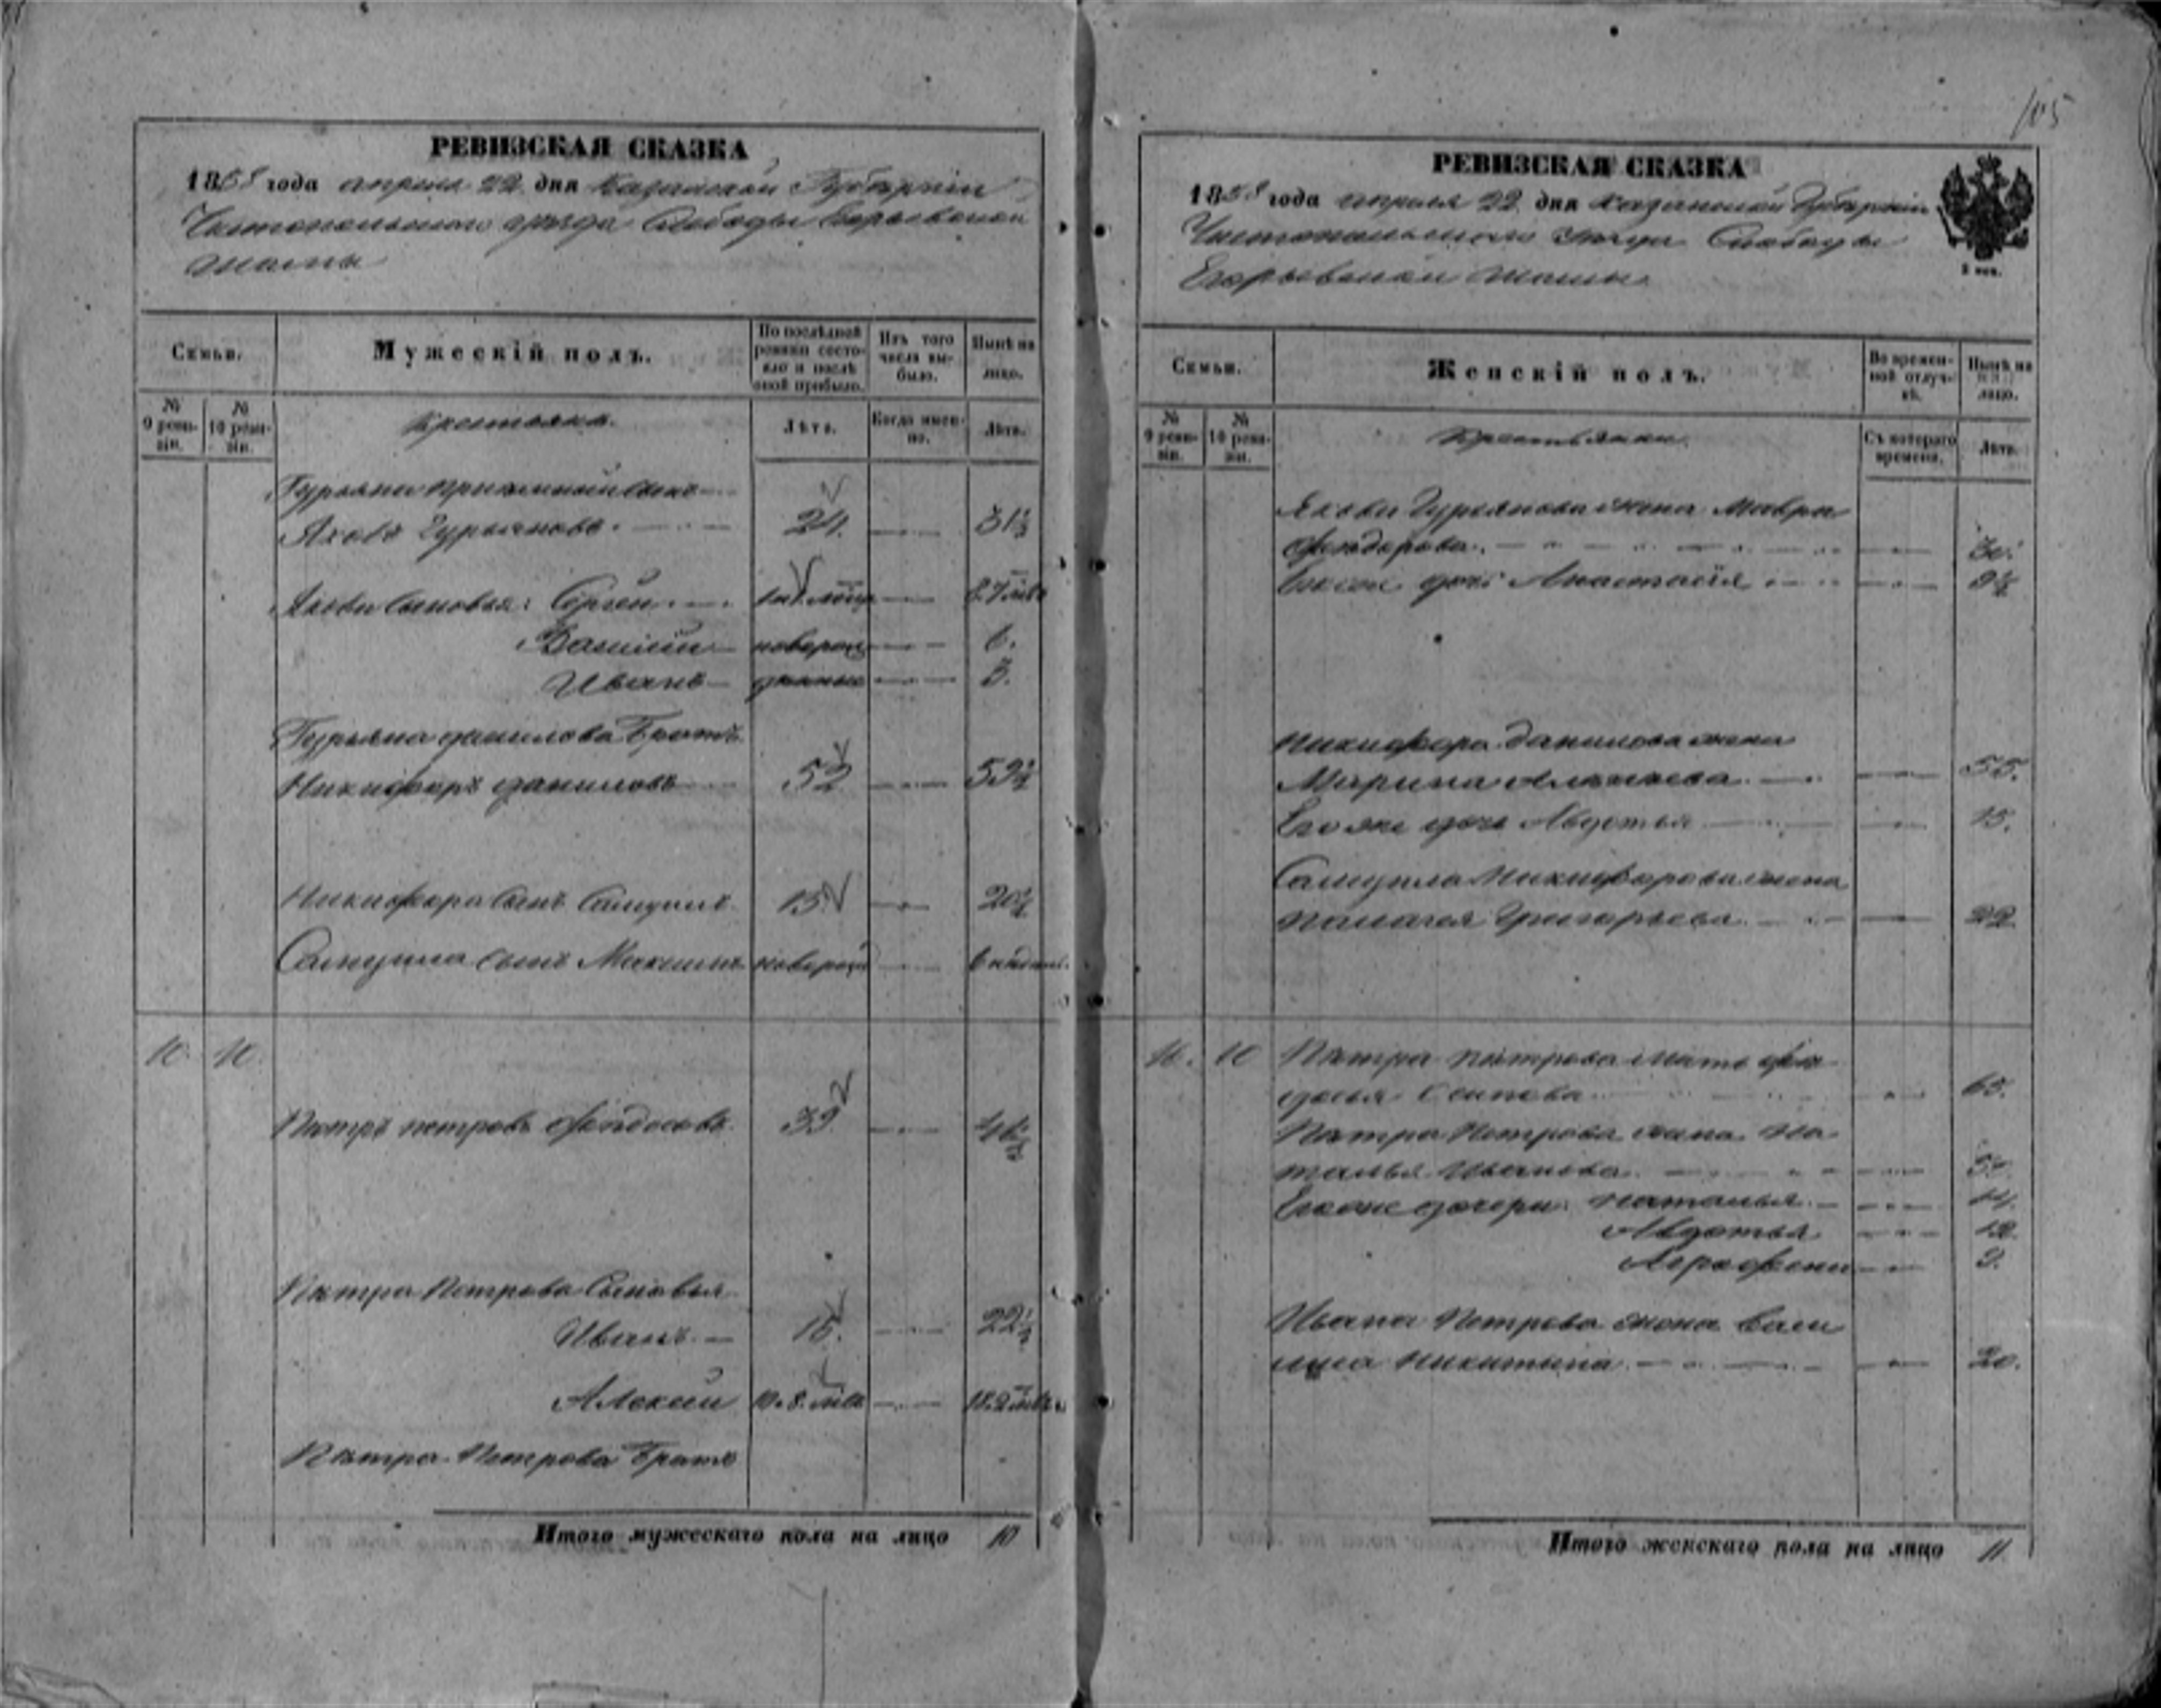 105
РЕВИЗСКАЯ СКАЗКА
1858 года апреля 22 дня Казанской Губернiи
Чистопольскаго уѣзда Слободы Егорьевской
Шамы
Семьи.
Мужескiй полъ.
По послѣдней ревизiи состояло и послѣ оной прибыло.
Изъ того числа выбыло.
Нынѣ на лицо.
№ 9 ревизiи.
№ 10 ревизiи.
Крестьяне.
Лѣта.
Когда именно.
Лѣта.
Гурьяна прiемный сынъ
Яковъ Гурьяновъ. 24. 31½
Якова Сыновья: Сергей
Василiй новорож 6.
Иванъ 3.
Гурьяна Данилова Братъ
Никифоръ Даниловъ 52 59½
Никифора Сынъ Самуилъ 13 20½
Самуила сынъ Максимъ новорож
10. 10.
Петръ Петровъ 39
Петра Петрова Сыновья
Иванъ 15. 22½
Алексей
Петра Петрова Братъ
Итого мужескаго пола на лицо 10
РЕВИЗСКАЯ СКАЗКА
1858 года апреля 22 дня Казанской Губернiи
Чистопольскаго уѣзда Слободы
Егорьевской Шамы
Семьи.
Женскiй полъ.
Во временной отлучкѣ.
Нынѣ на лицо.
№ 9 ревизiи.
№ 10 ревизiи.
Крестьянки
Съ котораго времени.
Лѣта.
Якова Гурьянова жена Мавра
Феодорова. 30.
дочь Анастасiя
Никифора Данилова жена
Марина 55.
Его же дочь Авдотья 15.
Самуила Никифорова жена
Палагея Григорьева 22
10. 10 Петра Петрова мать Фео
досья Осипова 65.
Петра Петрова жена На
талья Иванова
Его же дочери: Наталья 14.
Авдотья 12.
Аграфена
Ивана Петрова жена Васи
лиса Никитина 20.
Итого женскаго пола на лицо 11